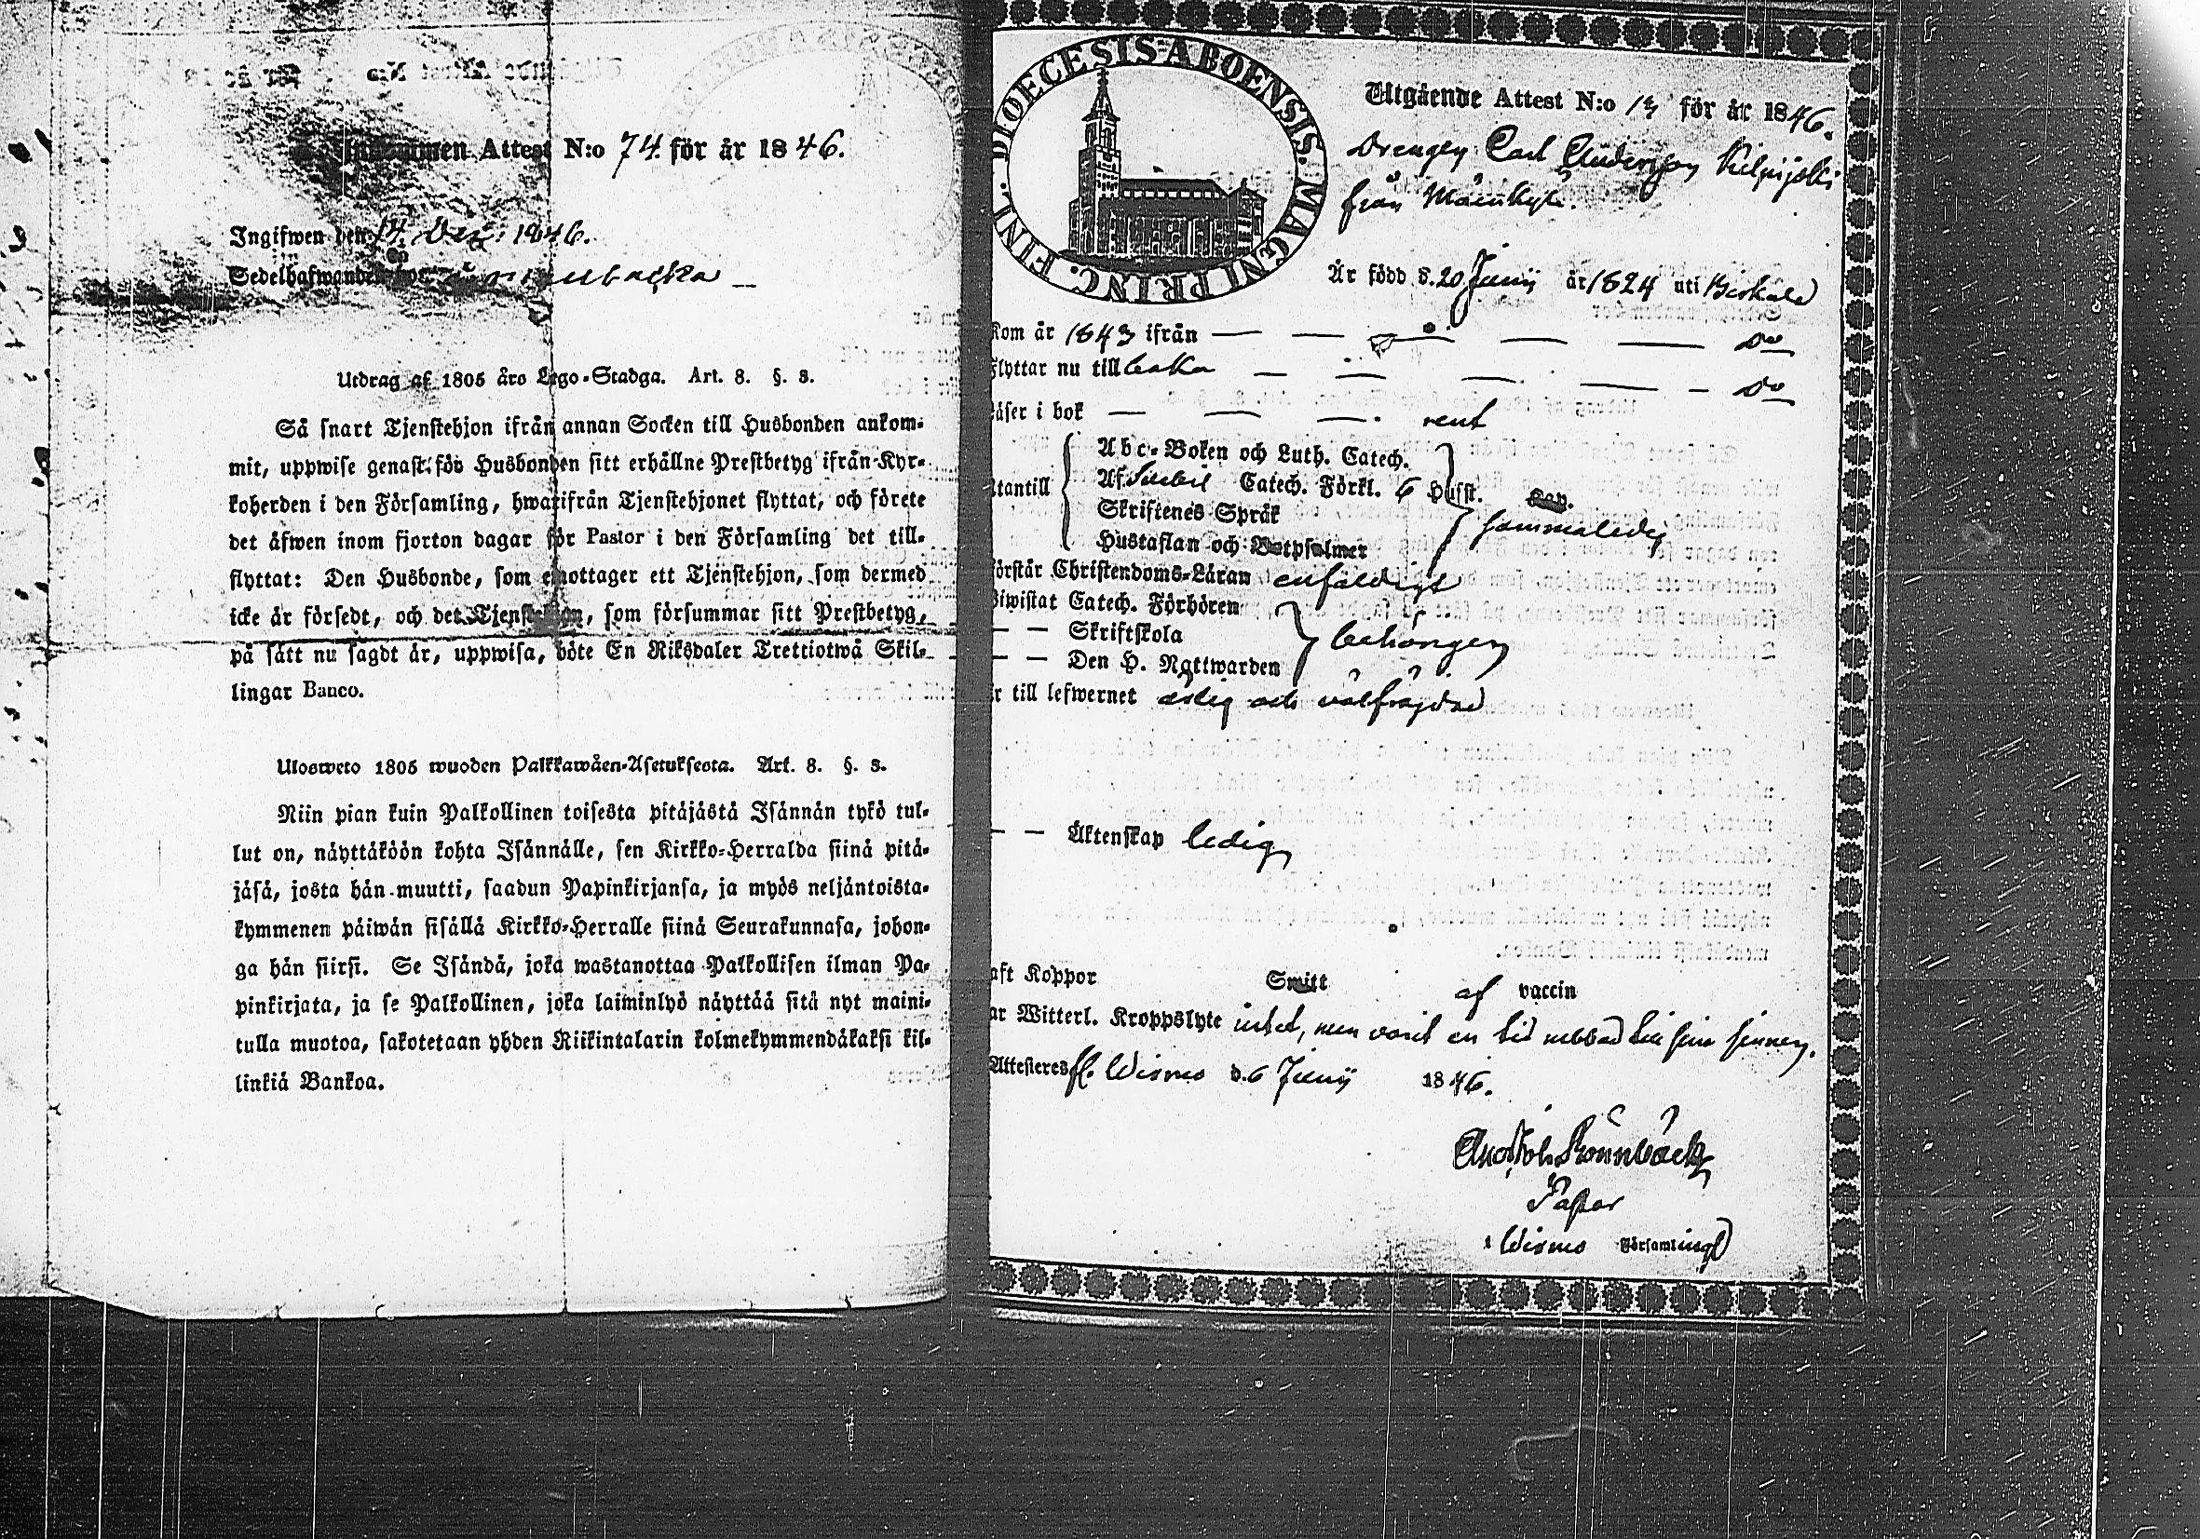 Attest N:o 74. för år 1846.
Ingifwen den 14 Dec: 1846.
Sedelhafwanden
Utdrag af 1805 års Lego-Stadga. Art. 8. §. 3.
Så snart Tjenstehjon ifrån annan Socken till Husbonden ankom-
mit, uppwise genast för Husbonden sitt erhållne Prestbetyg ifrån Kyr-
koherden i den Församling, hwarifrån Tjenstehjonet flyttat, och förete
det äfwen inom fjorton dagar för Pastor i den Församling det till-
flyttat: Den Husbonde, som emottager ett Tjenstehjon, som dermed
icke är försedt, och det Tjenstehjon, som försummar sitt Prestbetyg,
på sätt nu sagdt är, uppwisa, böte En Riksdaler Trettiotwå Skil-
lingar Banco.
Ulosweto 1805 wuoden Palkkawäen-Asetuksesta. Art. 8. §. 3.
Niin pian kuin Palkollinen toisesta pitäjästä Isännän tykö tul-
lut on, näyttäköön kohta Isännälle, sen Kirkko-Herralda siinä pitä-
jäsä, josta hän muutti, saadun Papinkirjansa, ja myös neljäntoista-
kymmenen päiwän sisällä Kirkko-Herralle siinä Seurakunnasa, johon-
ga hän siirsi. Se Isändä, joka wastanottaa Palkollisen ilman Pa-
pinkirjata, ja se Palkollinen, joka laiminlyö näyttää sitä nyt maini-
tulla muotoa, sakotetaan yhden Riikintalarin kolmekymmendäkaksi kil-
linkiä Bankoa.
DIOECESIS ABOENSIS. MAGNI PRINC. FINL.
Utgående Attest N:o 13 för år 1846.
Drengen Carl Andersson Kilpijoki
från
Är född d. 20 Junij år 1824 uti Birkala
Kom år 1843 ifrån — — — — — Do
Flyttar nu till baka — — — — — Do
Läser i bok — — — rent
Abc-Boken och Luth. Catech.
Utantill Af Svebil Catech. Förkl. 6 Hufst.
Skriftenes Språk
sammaledes
Hustaflan och Botpsalmer
Förstår Christendoms-Läran enfaldigt
Biwistat Catech. Förhören
— — Skriftskola behörigen
— — Den H. Nattwarden
Är till lefwernet ärlig och välfrägdad
— — Äktenskap ledig
Haft Koppor Smitt af vaccin
Har Witterl. Kroppslyte intet, men varit en tid rubbad till sina sinnen.
Attesteres fr. Wismo d. 6 Junij 1846.
And. Joh. Rönnbäck
Pastor
i Wismo Församling